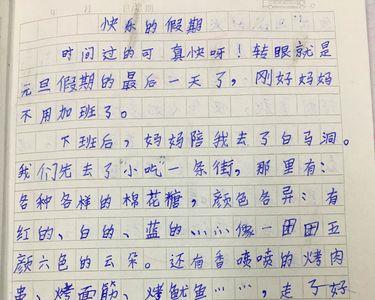 快乐的假期
时间过的可真快呀！转眼就是
元旦假期的最后一天了，刚好妈妈
不用加班了。
下班后，妈妈陪我去了白马洞。
我们先去了“小吃”一条街，那里有：
各种各样的棉花糖，颜色各异：有
红的、白的、蓝的……像一团团五
颜六色的云朵。还有香喷喷的烤肉
串、烤面筋、烤鱿鱼……，走了好